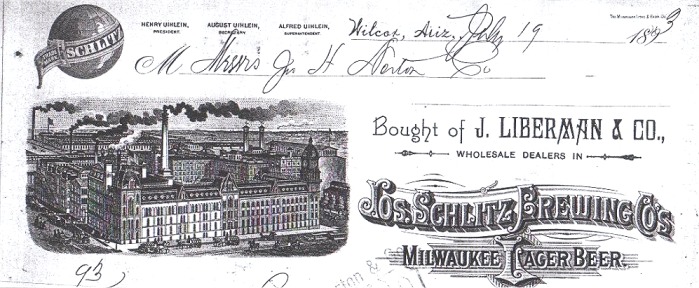 HENRY UIHLEIN,
PRESIDENT.
AUGUST UIHLEIN,
SECRETARY
ALFRED UIHLEIN,
SUPERINTENDENT.
SCHLITZ
Wilcox, Ariz, July 19 1893
M Messrs Jno H Norton Co
Bought of J. LIBERMAN & CO.,
WHOLESALE DEALERS IN
JOS. SCHLITZ BREWING CO'S
MILWAUKEE LAGER BEER.
93